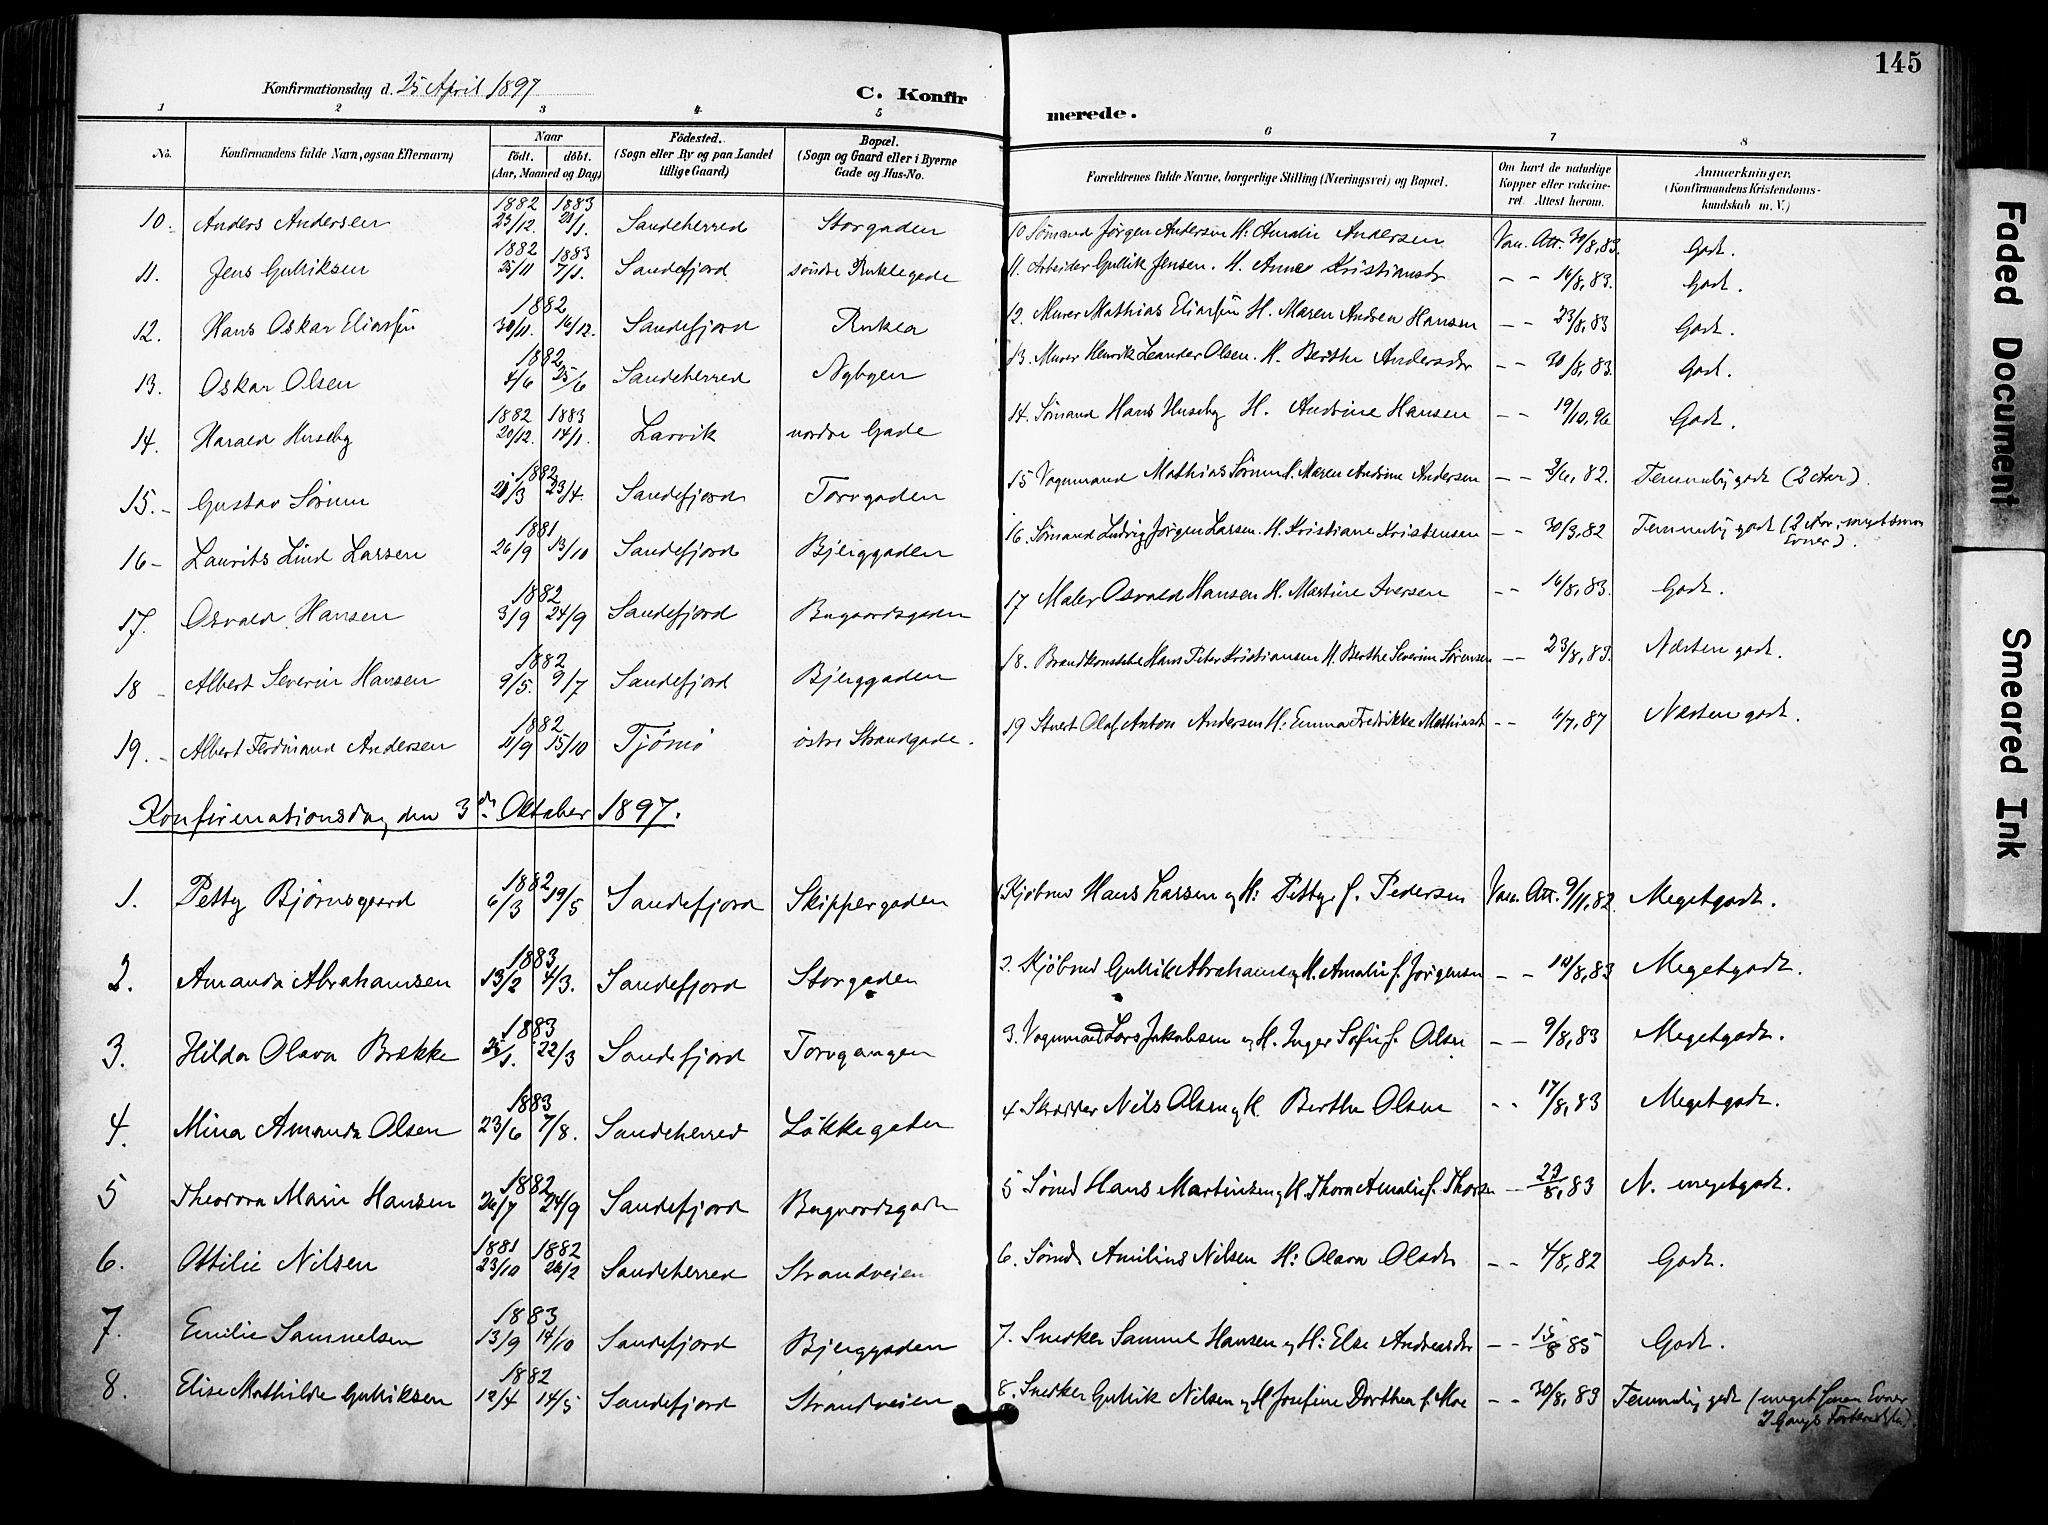 145
Konfirmationsdag d. 25 April 1897
C. Konfirmerede.
1 2 3 4 5 6 7 8
No.
Konfirmandens fulde Navn, ogsaa Efternavn)
Naar
født. døbt.
(Aar, Maaned og Dag)
Födested.
(Sogn eller By og paa Landet tillige Gaard)
Bopæl.
(Sogn og Gaard eller i Byerne Gade og Hus-No.
Forældrenes fulde Navne, borgerlige Stilling (Næringsvei) og Bopæl.
Om havt de naturlige Kopper eller vakcineret. Attest herom.
Anmærkninger.
(Konfirmandens Kristendomskundskab m. V.)
10. Anders Andersen 1882 23/12. 1883 Sandeherred Storgaden 10 Sømand Jørgen Andersen H. Amalie Andersen Vac. Att. 30/8, 83. Godt.
11. Jens Gulliksen 1882 25/11 1883 7/1. Sandefjord søndre 11. Arbeider Gullik Jensen. H. Anne Kristiansdr - - 14/8, 83. Godt.
12. Hans Oskar Eliassen 1882 30/11. 16/12. Sandefjord 12. Murer Mathias Eliassen H. Maren Andrea Hansen - - 23/8, 83 Godt.
13. Oskar Olsen 1882 4/6 25/6 Sandeherred Nybyen 13. Murer Henrik Leander Olsen. H. Berthe Andersdr - - 30/8, 83. Godt.
14. Harald Huseby 1882 20/12. 1883 14/1. Larvik nordre Gade 14. Sømand Hans Huseby H. Andrine Hansen - - 19/10, 96 Godt.
15. - Gustav Sørum 1882 23/4. Sandefjord Torvgaden 15 Vognmand Mathias Sørum H. Maren Andrine Andersen - - 82. Temmelig godt (2 Aar).
16 - Laurits Lind Larsen 1881 26/9 13/10 Sandefjord Bjerggaden 16. Sømand Ludvig Jørgen Larsen. H. Kristiane Kristensen - - 30/3, 82 Temmelig godt (2 Aar, meget smaa Evner).
17. Osvald Hansen 1882 3/9 24/9 Sandefjord Bugaardsgaden 17 Maler Osvald Hansen H. Martine Iversen - - 16/8, 83. Godt.
18 - Albert Severin Hansen 1882 9/5. 9/7 Sandefjord Bjerggaden 18. Brandkonstabel Hans Peter Kristiansen H. Berthe Severine Sørensen - - 23/8, 83. Næsten godt.
19. - Albert Ferdinand Andersen 1882 15/10 Tjømø østre Strandgade. 19 Stuert Olaf Anton Andersen H: Emma Fredrikke Mathiasdr - - 6/7, 87 Næsten godt.
Konfirmationsdag den 3de Oktober 1897.
1. Petty Bjørnsgaard 1882 6/3 19/5 Sandefjord Skippergaden 1. Kjøbmd Hans Larsen og H: Petty f. Pedersen Vac. Att. 9/11, 82. Megetgodt.
2. Amanda Abrahamsen 1883 13/2 4/3. Sandefjord Storgaden 2. Kjøbmd Gullik Abrahamsen og H. Amalie f. Jørgensen - - 10/8, 83 Megetgodt.
3. Hilda Olava Brække 1883 22/3 Sandefjord Torvgangen 3. Vognmand Lars Jakobsen og H. Inger Sofie f. Olsen - - 9/8, 83 Megetgodt.
4. Mina Amanda Olsen 1883 23/6 7/8. Sandeherred Løkkegaden 4 Skrædder Nils Olsen og H. Berthe Olsen - - 17/8, 83 Megetgodt.
5 Theodora Marie Hansen 1882 26/7 24/9 Sandefjord Bugaardsgade 5 Sømd Hans Martinsen og H. Thora Amalie f. Thorsen - - 23/8, 83 N. megetgodt.
6. Ottilie Nilsen 1881 23/10 1882 26/2 Sandeherred Strandveien 6. Sømd Amilius Nilsen H: Olava Olsdr - - 4/8, 82 Godt.
7. Emilie Samuelsen 1883 13/9 14/10 Sandefjord Bjerggaden 7. Snedker Samuel Hansen og H: Else Andreasdr - - 15/8 85 Godt.
8. Elise Mathilde Gulliksen 1882 12/4 14/5 Sandefjord Strandveien 8. Snedker Gullik Nilsen og H Josefine Dorthea f. Moe - - 30/8, 83 Temmelig godt (meget smaa Evner
Faded Document
Smeared Ink